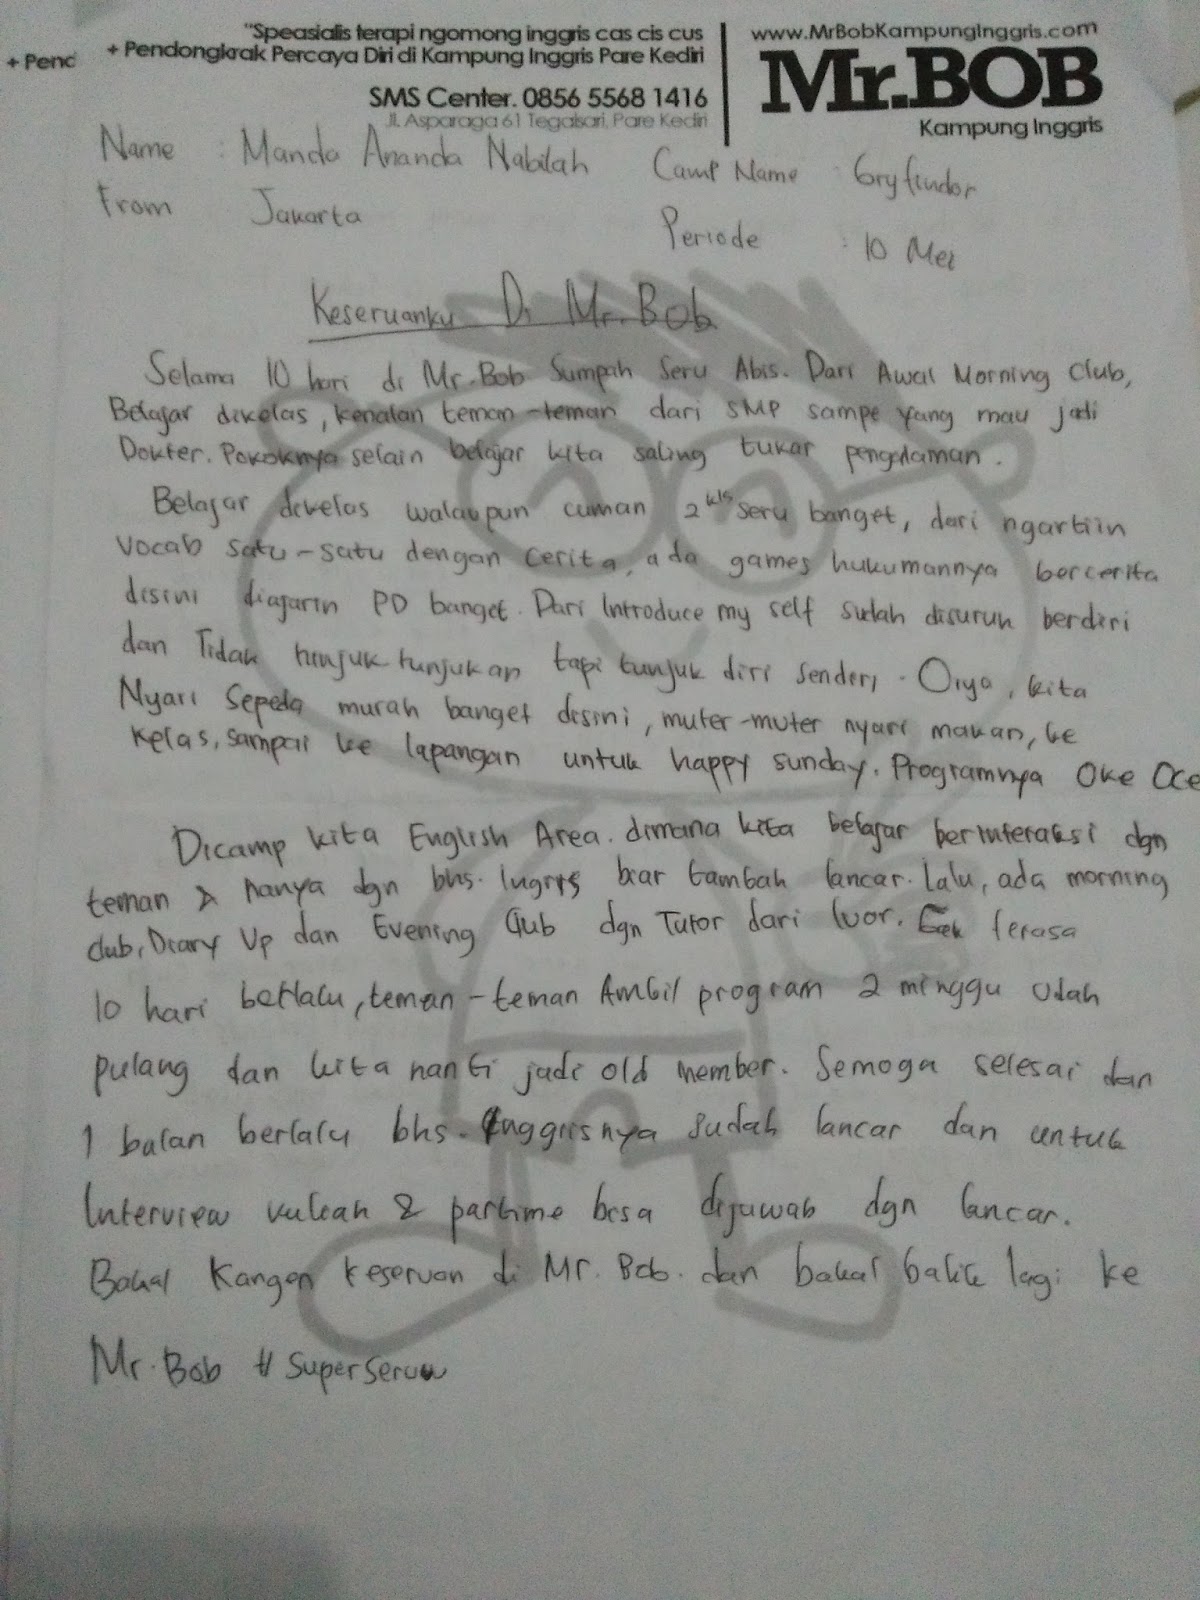 "Speasialis terapi ngomong inggris cas cis cus
+ Pend
+ Pendongkrak Percaya Diri di Kampung Inggris Pare Kediri
SMS Center. 0856 5568 1416
Jl. Asparaga 61 Tegalsari, Pare Kediri
www.MrBobKampungInggris.com
Mr.BOB
Kampung Inggris
Name : Manda Ananda Nabilah
Camp Name : Gryfindor
From Jakarta
Periode : 10 Mei
Keseruanku Di Mr. Bob
Selama 10 hari di Mr.Bob Sumpah Seru Abis. Dari Awal Morning Club,
Belajar dikelas, kenalan teman-teman dari SMP sampe yang mau jadi
Dokter. Pokoknya selain belajar kita saling tukar pengalaman.
Belajar dikelas walaupun cuman 2 kls seru banget, dari ngartiin
vocab satu-satu dengan cerita, ada games hukumannya bercerita
disini diajarin PD banget. Dari Introduce my self sudah disuruh berdiri
dan Tidak tunjuk tunjukan tapi tunjuk diri senderi. Oiya, kita
Nyari Sepeda murah banget disini, muter-muter nyari makan, ke
kelas, sampai ke lapangan untuk happy sunday. Programnya Oke Oce
Dicamp kita English Area. dimana kita belajar berinteraksi dgn
teman hanya dgn bhs. Ingris biar tambah lancar. Lalu, ada morning
club, Diary Up dan Evening Club dgn Tutor dari luor. terasa
10 hari berlalu, teman-teman Ambil program 2 minggu udah
pulang dan kita nanti jadi old member. Semoga selesai dan
1 bulan berlalu bhs. Inggrisnya sudah lancar dan untuk
Interview kuliah & partime bisa dijawab dgn lancar.
Bakal Kangen keseruan di Mr. Bob. dan bakal balik lagi ke
Mr. Bob # Superseruw